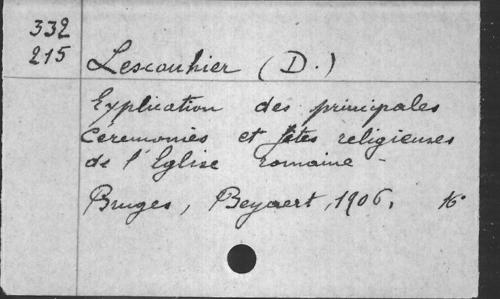 332
215
Lescouhier (D.)
Explication des principales
Ceremonies et fêtes religieuses
de l'Eglise romaine -
Bruges, Beyaert, 1906. 16°